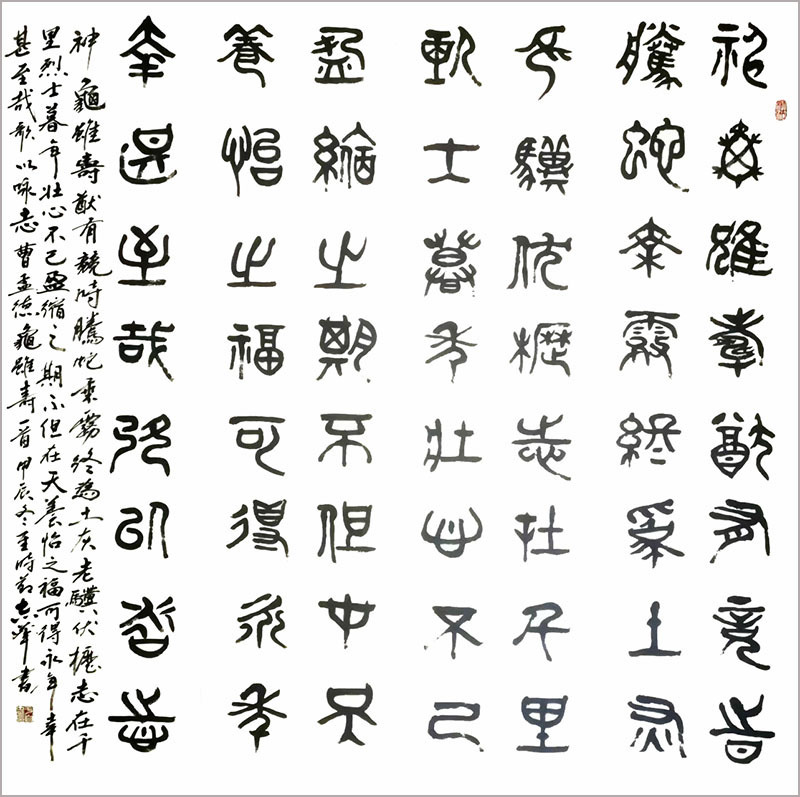 神龜雖壽猶有竟時
騰蛇乘霧終為土灰
老驥伏櫪志在千里
烈士暮年壯心不已
盈縮之期不但在天
養怡之福可得永年
幸甚至哉歌以詠志
神龜雖壽猶有競時騰蛇乘霧終為土灰老驥伏櫪志在千
里烈士暮年壯心不已盈縮之期不但在天養怡之福可得永年幸
甚至哉歌以咏志曹孟德龜雖壽一首甲辰冬至時節書